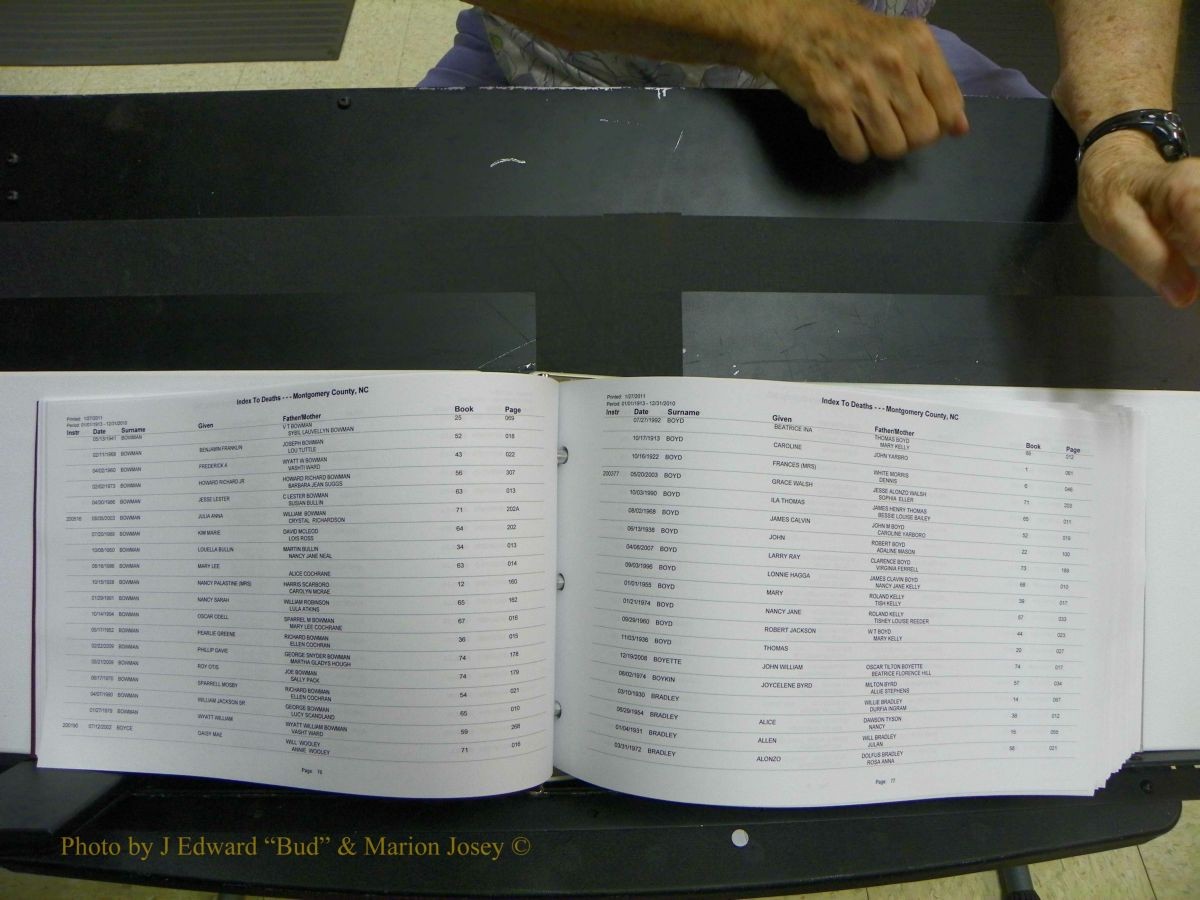 Index To Deaths - - - Montgomery County, NC
Printed: 1/27/2011
Period: 01/01/1913 - 12/31/2010
Instr Date Surname Given Father/Mother Book Page
05/13/1941 BOWMAN V T BOWMAN 25 069
SYBIL LAUVELLYN BOWMAN
02/11/1968 BOWMAN BENJAMIN FRANKLIN JOSEPH BOWMAN 52 018
LOU TUTTLE
04/02/1960 BOWMAN FREDERICK A WYATT W BOWMAN 43 022
VASHTI WARD
02/02/1973 BOWMAN HOWARD RICHARD JR HOWARD RICHARD BOWMAN 56 307
BARBARA JEAN SUGGS
BOWMAN JESSE LESTER C LESTER BOWMAN 63 013
SUSAN BULLIN
BOWMAN JULIA ANNA WILLIAM BOWMAN 71 202A
CRYSTAL RICHARDSON
BOWMAN KIM MARIE DAVID MCLEOD 64 202
LOIS ROSS
BOWMAN LOUELLA BULLIN MARTIN BULLIN 34 013
NANCY JANE NEAL
BOWMAN MARY LEE 63 014
ALICE COCHRANE
BOWMAN NANCY PALASTINE (MRS) HARRIS SCARBORO 12 160
CAROLYN MCRAE
BOWMAN NANCY SARAH WILLIAM ROBINSON 65 162
LULA ATKINS
BOWMAN OSCAR ODELL SPARREL M BOWMAN 67 016
MARY LEE COCHRANE
BOWMAN PEARLIE GREENE RICHARD BOWMAN 36 015
ELLEN COCHRAN
BOWMAN PHILLIP DAVIE GEORGE SNYDER BOWMAN 74 178
MARTHA GLADYS HOUGH
BOWMAN ROY OTIS JOE BOWMAN 74 179
SALLY PACK
BOWMAN SPARRELL MOSBY RICHARD BOWMAN 54 021
ELLEN COCHRAN
BOWMAN WILLIAM JACKSON SR GEORGE BOWMAN 65 010
LUCY SCANDLAND
BOWMAN WYATT WILLIAM WYATT WILLIAM BOWMAN 59 268
VASHT WARD
200190 07/12/2002 BOYCE DAISY MAE WILL WOOLEY 71 016
ANNIE WOOLEY
Page 76
Index To Deaths - - - Montgomery County, NC
Printed: 1/27/2011
Period: 01/01/1913 - 12/31/2010
Instr Date Surname Given Father/Mother Book Page
07/27/1992 BOYD BEATRICE INA THOMAS BOYD 012
MARY KELLY
10/17/1913 BOYD CAROLINE JOHN YARBRO 1 061
10/16/1922 BOYD FRANCES (MRS) WHITE MORRIS 6 046
DENNIS
200377 05/20/2003 BOYD GRACE WALSH JESSE ALONZO WALSH 71 203
SOPHIA ELLER
10/03/1990 BOYD ILA THOMAS JAMES HENRY THOMAS 011
BESSIE LOUISE BAILEY
08/02/1968 BOYD JAMES CALVIN JOHN M BOYD 52 019
CAROLINE YARBORO
06/13/1938 BOYD JOHN ROBERT BOYD 22 100
ADALINE MASON
04/08/2007 BOYD LARRY RAY CLARENCE BOYD 73
VIRGINIA FERRELL
09/03/1996 BOYD LONNIE HAGGA JAMES CLAVIN BOYD 68 010
NANCY JANE KELLY
01/01/1955 BOYD MARY ROLAND KELLY 39 017
TISH KELLY
01/21/1974 BOYD NANCY JANE ROLAND KELLY 57 033
TISHEY LOUISE REEDER
09/29/1960 BOYD ROBERT JACKSON W T BOYD 44 023
MARY KELLY
11/03/1936 BOYD THOMAS 20 027
12/19/2008 BOYETTE JOHN WILLIAM OSCAR TILTON BOYETTE 74 017
BEATRICE FLORENCE HILL
06/02/1974 BOYKIN JOYCELENE BYRD MILTON BYRD 57 034
ALLIE STEPHENS
03/10/1930 BRADLEY WILLIE BRADLEY 14 067
DURFIA INGRAM
06/20/1954 BRADLEY ALICE DAWSON TYSON 38 012
NANCY
01/04/1931 BRADLEY ALLEN WILL BRADLEY 15 055
JULAN
03/31/1972 BRADLEY ALONZO DOLFUS BRADLEY 56 021
ROSA ANNA
Page 77
Photo by J Edward “Bud” & Marion Josey ©